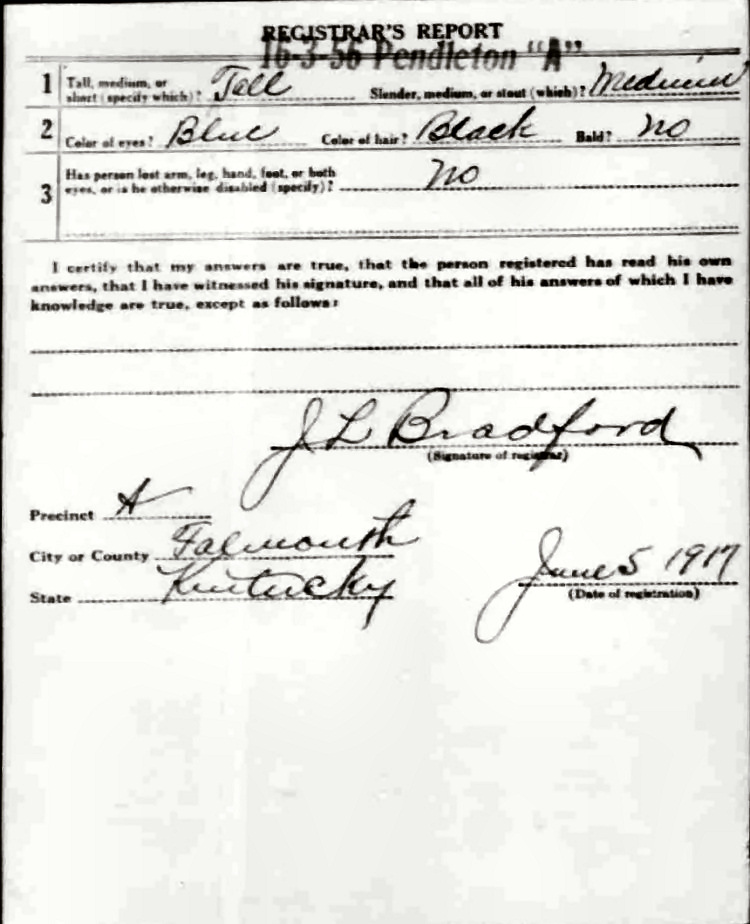 REGISTRAR'S REPORT
16-3-56 Pendleton "A"
1 Tall, medium, or short (specify which)? Tall Slender, medium, or stout (which)? Medium
2 Color of eyes? Blue Color of hair? Black Bald? No
3 Has person lost arm, leg, hand, foot, or both
eyes, or is he otherwise disabled (specify)? No
I certify that my answers are true, that the person registered has read his own
answers, that I have witnessed his signature, and that all of his answers of which I have
knowledge are true, except as follows:
J L Bradford
(Signature of registrar)
Precinct A
City or County Falmouth
State Kentucky
June 5 1917
(Date of registration)